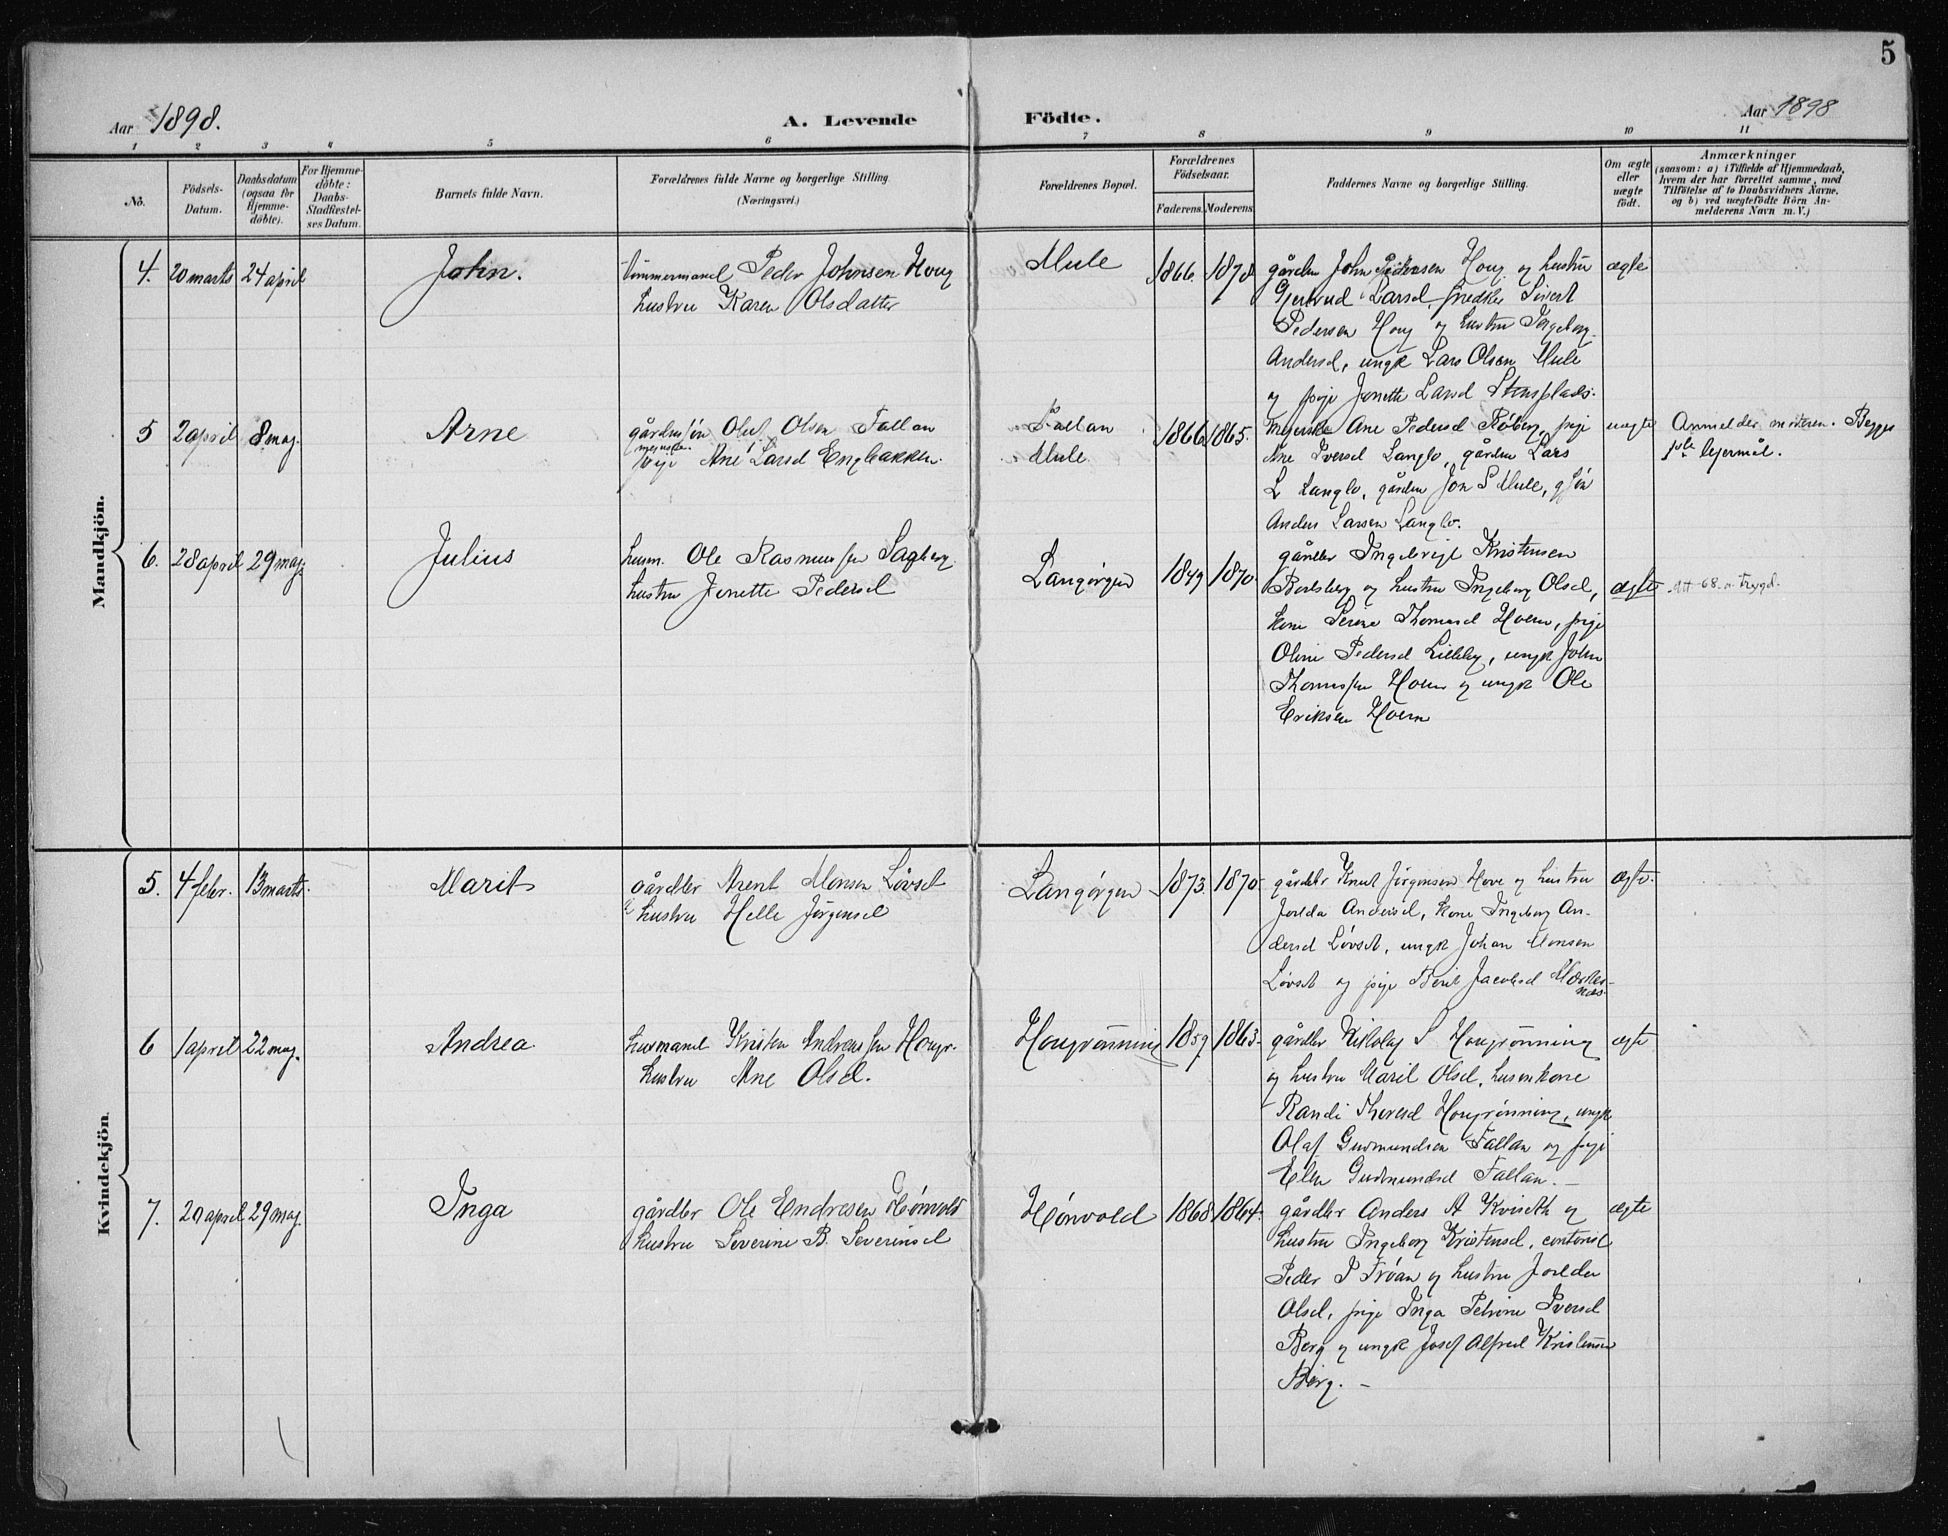 5
Aar 1898.
A. Levende Födte.
Aar 1898
1 2 3 4 5 6 7 8 9 10 11
No.
Födsels-
Datum.
Daabsdatum
(ogsaa for
Hjemme-
döbte).
For Hjemme-
döbte:
Daabs-
Stadfæstel-
ses Datum.
Barnets fulde Navn.
Forældrenes fulde Navne og borgerlige Stilling.
(Næringsvei.)
Forældrenes Bopæl.
Forældrenes
Födselsaar.
Faderens.
Moderens.
Faddernes Navne og borgerlige Stilling.
Om ægte
eller
uægte
födt.
Anmærkninger
(saasom: a) i Tilfælde af Hjemmedaab,
hvem der har forrettet samme, med
Tilföielse af to Daabsvidners Navne,
og b) ved uægtefödte Börn An-
melderens Navn m. V.)
Mandkjön.
4. 20 marts 24 april John. tømmermand Peder Johnsen Houg
hustru Karen Olsdatter
Mule 1866. 1878
gårdm John Pedersen Houg og hustru
Gjertrud Larsd, snedker Sivert
Pedersen Houg og hustru Ingeborg
Andersd, ungk Lars Olsen Mule
og pige Jonette Larsd Stensplads.
ægte
5 2 april 8 maj. Arne gårdms søn Oluf Olsen Fallan
pige Ane Larsd Engbakken.
Fallan
Mule
1866 1865.
meierske Ane Pedersd Røberg, pige
Ane Iversd Langlo, gårdm Lars
L Langlo, gårdm Jon S Mule, gsøn
Anders Larsen Langlo.
uægte
Anmelder moderen. Begges
1ste lejermål.
6. 28 april 29 maj. Julius husm. Ole Rasmussen Sagberg
hustru Jonette Pedersd
Langørgen 1849 1870.
gårdbr Ingebrigt Kristensen
og hustru Ingeborg Olsd,
kone Serine Thomasd Hoem, pige
Oline Pedersd Lilleby, ungk John
Thomassen Hoem og ungk Ole
Eriksen Hoem
ægte
Att 68. n. trygd.
Kvindekjön.
5. 4 febr. 13 marts. Marit gårdbr Arent Monsen Løvset
& hustru Helle Jørgensd
Langørgen 1873 1870
gårdbr Knut Jørgensen Hove og hustru
Andersd, kone Ingeborg An-
dersd Løvset, ungk Johan Monsen
Løvset og pige Berit Jacobsd
ægte.
6 1 april 22 maj. Andrea husmand Kristen Andreassen Hougr.
hustru Ane Olsd.
Hougrønning 1859 1863.
gårdbr Nikolaj S Hougrønning
og hustru Marit Olsd, husmkone
Randi Hougrønning, ungk
Olaf Gudmundsen Fallan og pige
Elen Gudmundsd Fallan.
ægte
7. 20 april 29 maj. Inga gårdbr Ole Endresen Hønvold
hustru Severine B. Severinsd
Hønvold 1868 1864.
gårdbr Anders A Kviseth og
hustru Ingeborg Kristensd,
Peder P Frøan og hustru
Olsd, pige Inga Petrine Iversd
Berg og ungk Josef Alfred Kristensen
Berg.
ægte